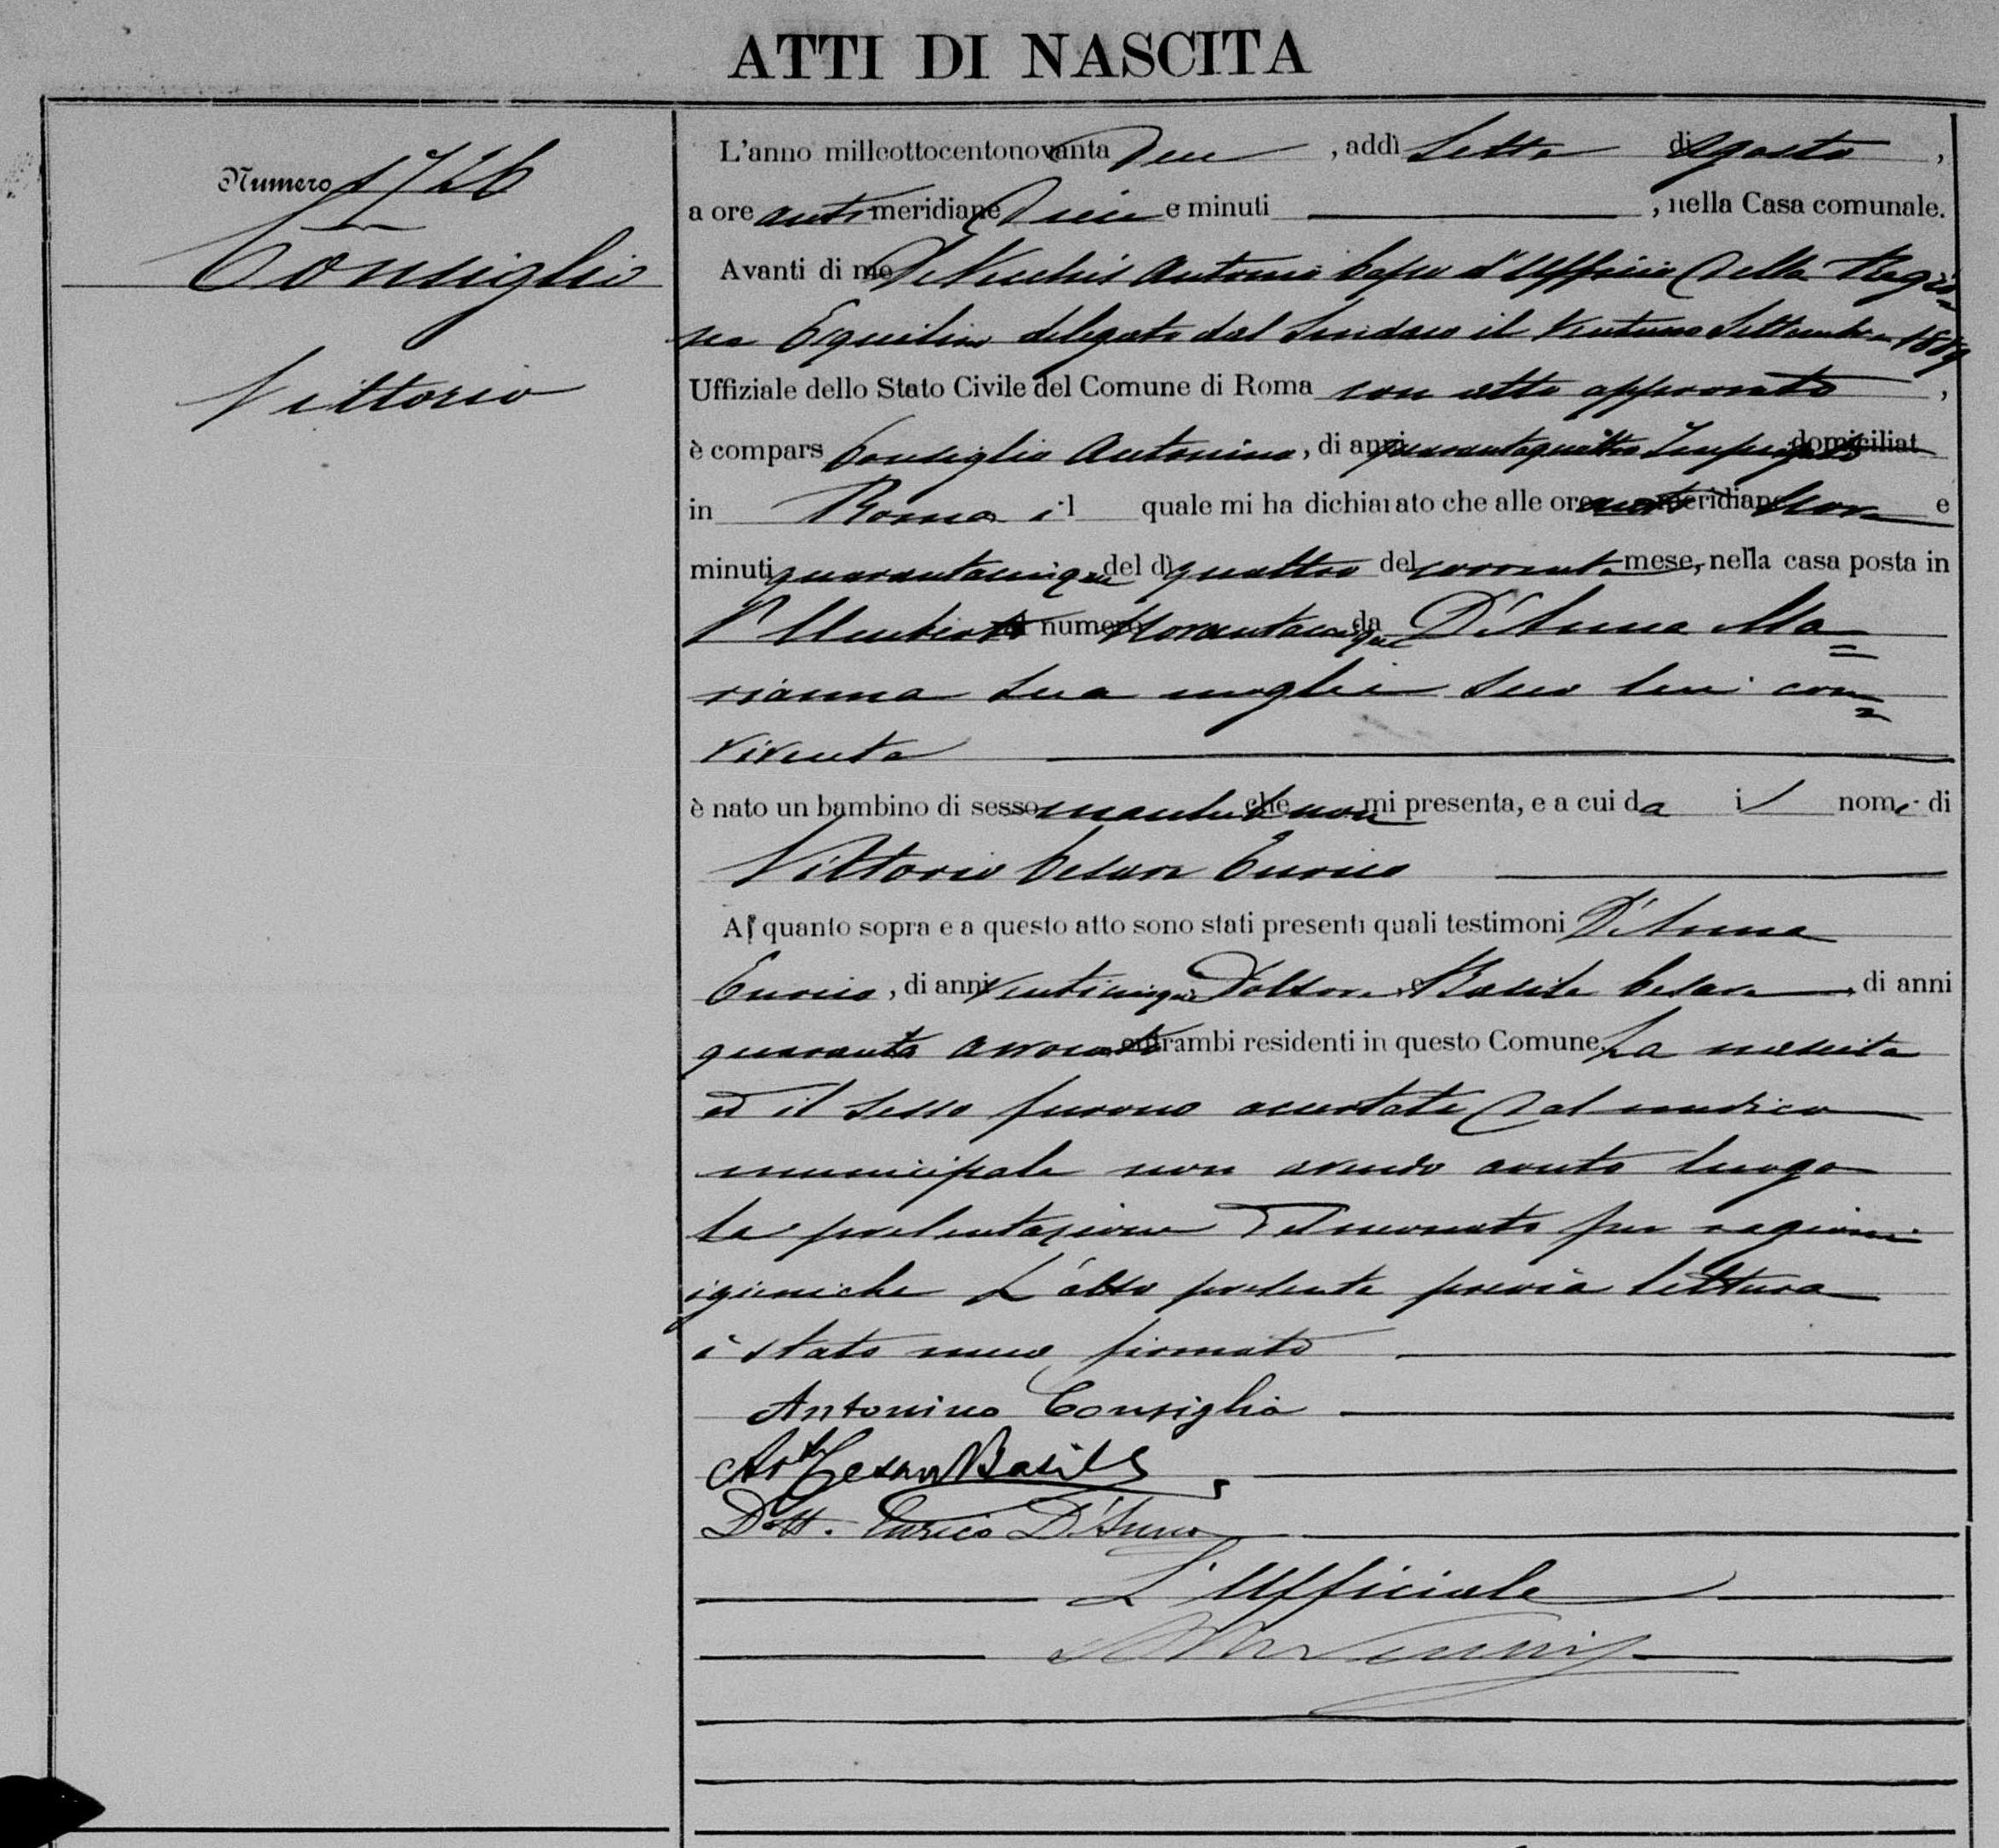 ATTI DI NASCITA
Numero 1726
Consiglio
Vittorio
L'anno milleottocentonovanta due, addì Sette di Agosto,
a ore anti meridiane Dieci e minuti, nella Casa comunale.
Avanti di me De Vecchis Antonio Capo d'Ufficio della Regio=
ne Esquilino delegato dal Sindaco il Ventuno Settembre 1889
Uffiziale dello Stato Civile del Comune di Roma con atto approvato,
è compars Consiglio Antonino, di anni quarantaquattro Impiegato domiciliat
in Roma il quale mi ha dichiarato che alle ore anti meridiane Nove e
minuti quarantacinque del dì quattro del corrente mese, nella casa posta in
al numero Novantacinque da D'Anna Ma=
rianna sua moglie seco lui con=
vivente
è nato un bambino di sesso maschile che non mi presenta, e a cui da il nome di
Vittorio Cesare Enrico
A quanto sopra e a questo atto sono stati presenti quali testimoni D'Anna
Enrico, di anni venticinque Dottore, e Basile Cesare, di anni
quaranta avvocato entrambi residenti in questo Comune. La nascita
ed il sesso furono accertati dal medico
municipale non avendo avuto luogo
la presentazione del neonato per ragioni
igieniche L'atto presente previa lettura
è stato meco firmato
Antonino Consiglio
Cesare Basile
Dott. Enrico D'Anna
L'Ufficiale